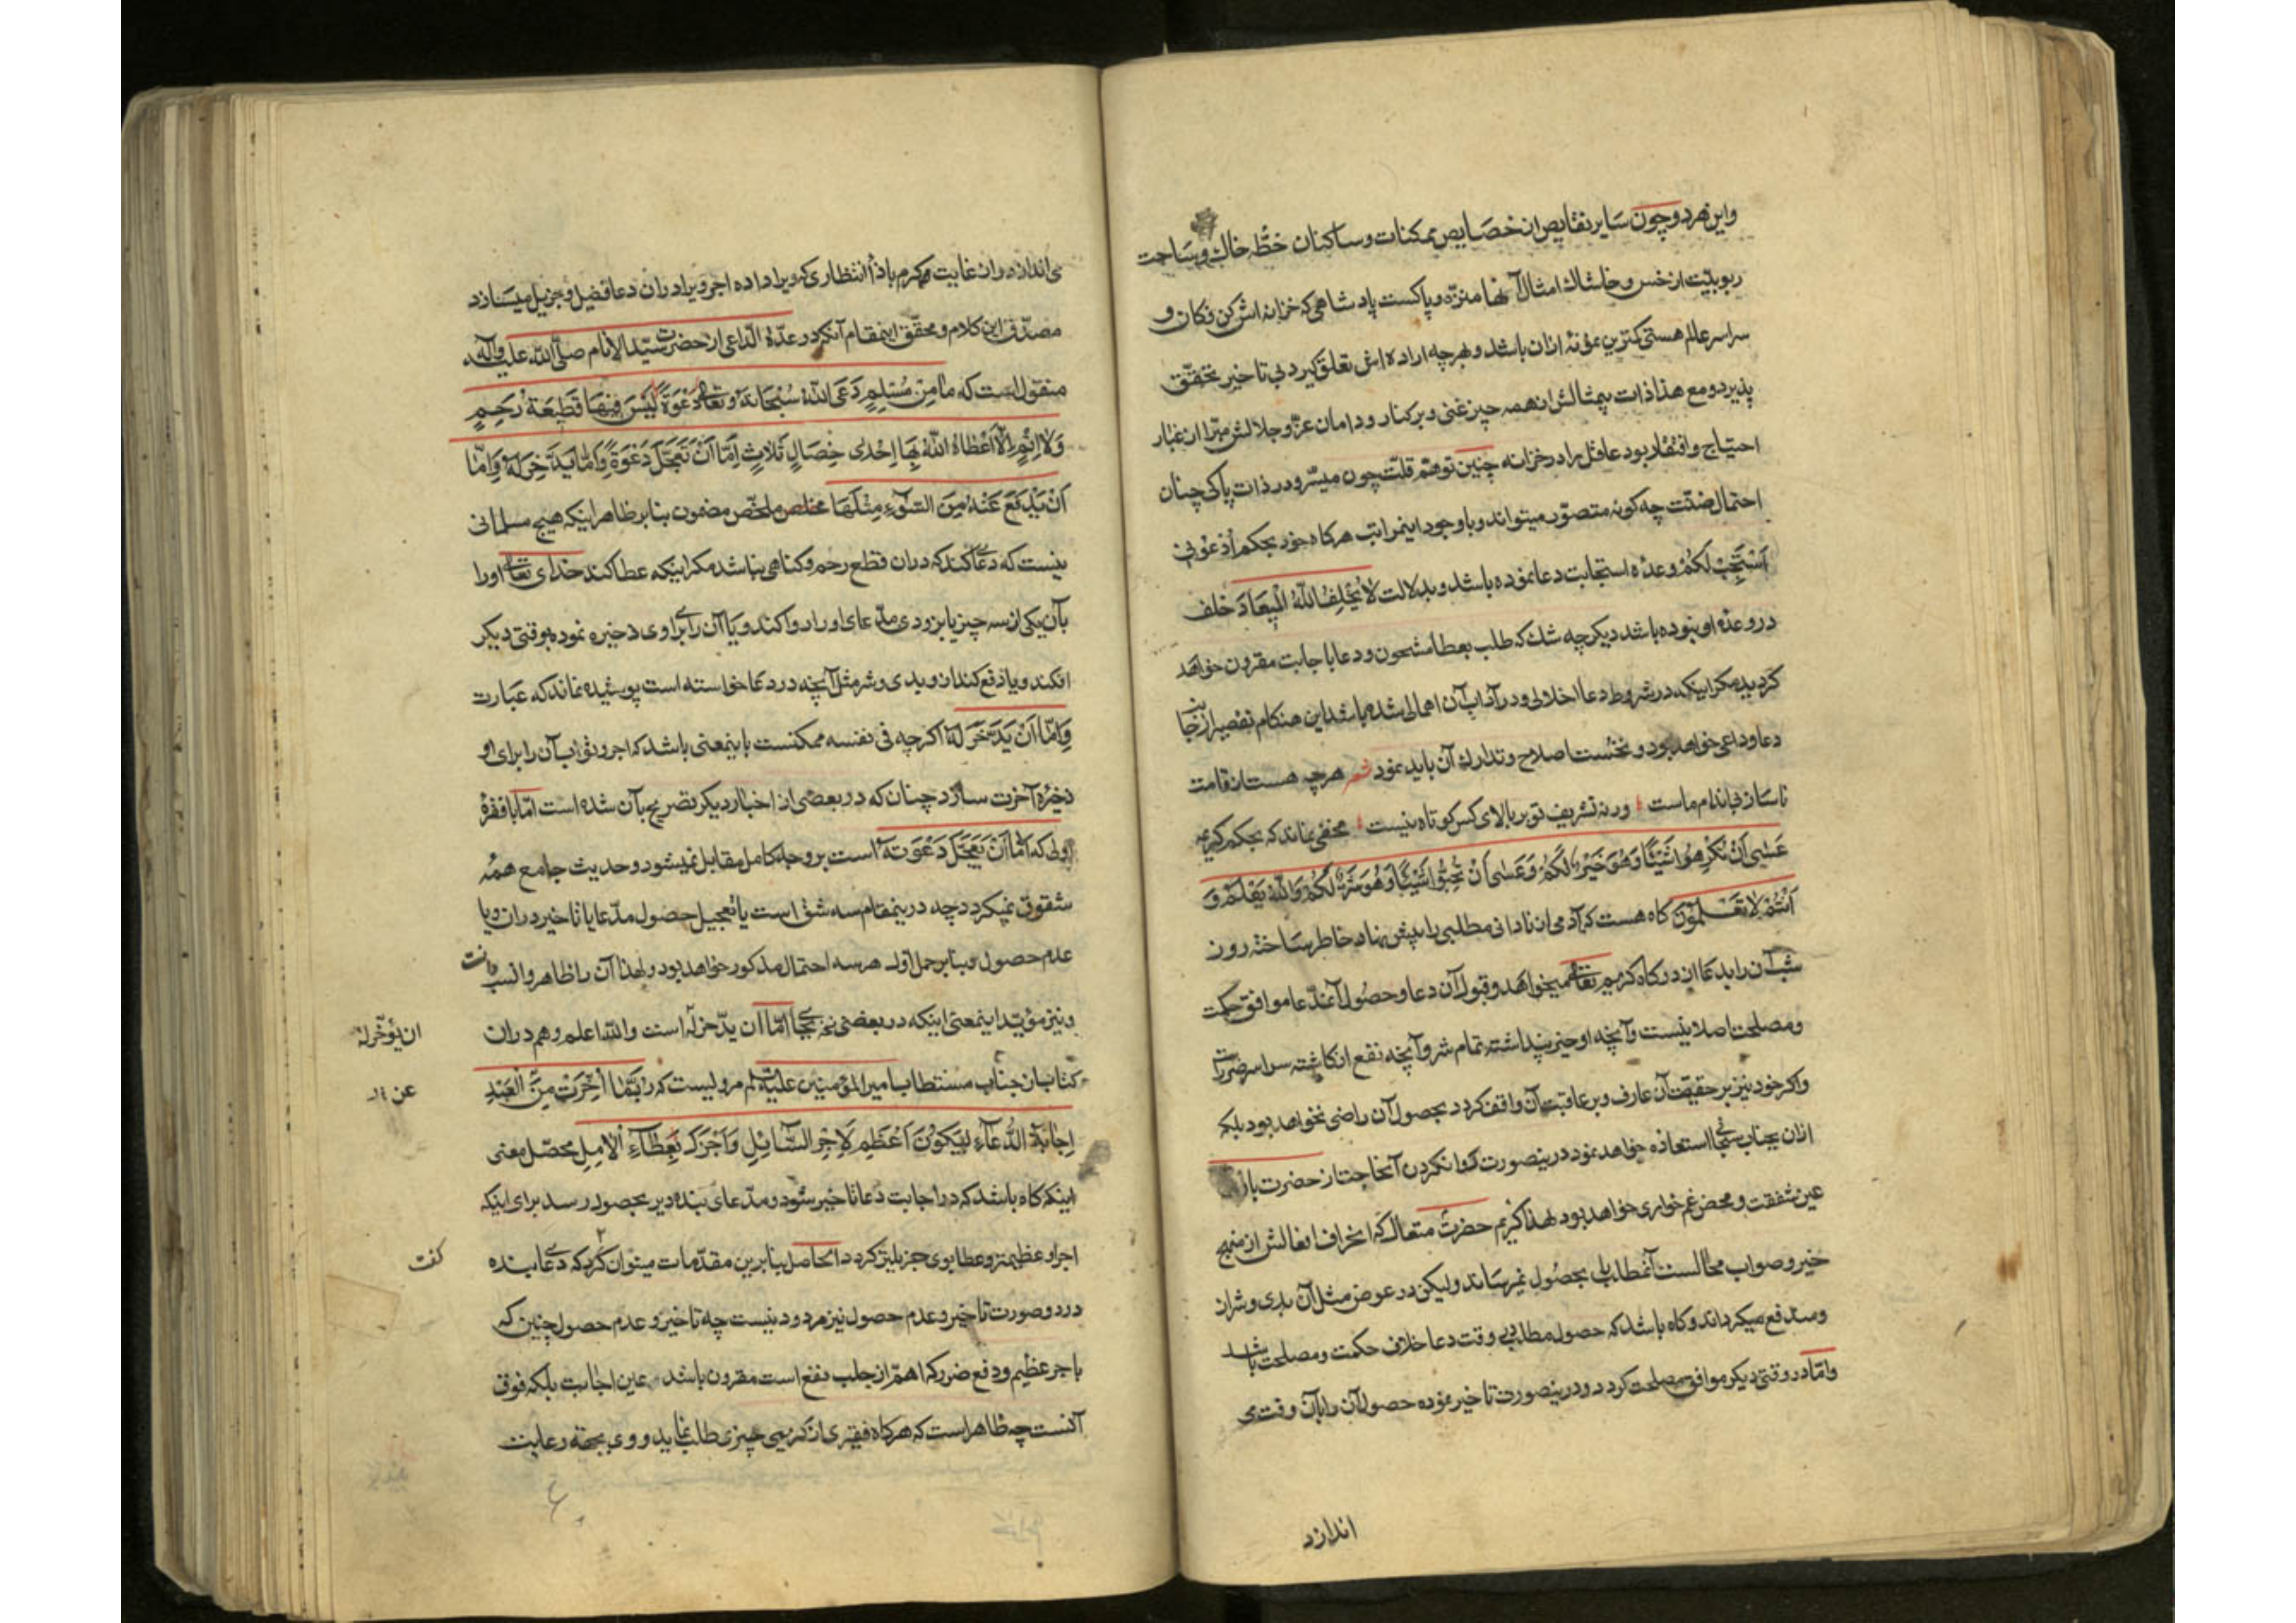 واین هر دو چون سایر نقایص از خصایص ممکنات و ساکنان خطّه خاک و ساحت
ربوبیّت از خس و خاشاک امثال آنها منزّه و پاکست پادشاهی که خزانه اش کن فکان و
سراسر عالم هستی کمترین مؤنهٔ ازان باشد و بهرچه اراده اش تعلق کیرد بی تاخیر تحقّق
پذیرد و مع هذا ذات بیمثالش از همه چیز غنی و برکنار و دامان عزّ و جلالش مبّرا از غبار
احتیاج و افتقار بود عاقل را در خزانه چنین توهّم قلّت چون میسّر و در ذات پاکی چنان
احتمال ضنّت چه کونه متصوّر میتواند و با وجود اینمراتب هرکاه خود بحکم اُدْعُونی
اَسْتَجِبْ لَکُمْ وعدهٔ استجابت دعا نموده باشد و بدلالت لا یُخْلِفُ اللّٰهُ الْمِیعَادَ خلف
در وعدهٔ او نبوده باشد دیکر چه شک که طلب بعطا مشحون و دعا باجابت مقرون خواهد
کردید مکر اینکه در شروط دعا اخلالی و در آداب آن اهمالی شده باشد این هنکام تقصیر از جانب
دعا و داعی خواهد بود و نخست اصلاح و تدارک آن باید نمود شعر هرچه هست از قامت
ناساز بی اندام ماست ورنه تشریف تو بر بالای کس کوتاه نیست مخفی نماند که بحکم کریمه
عَسٰی اَنْ تَکْرَهُوا شَیْئًا وَهُوَ خَیْرٌ لَکُمْ وَعَسٰی اَنْ تُحِبُّوا شَیْئًا وَهُوَ شَرٌّ لَکُمْ وَاللّٰهُ یَعْلَمُ وَ
اَنْتُمْ لا تَعْلَمُونَ کاه هست که آدمی از نادانی مطلبی را پیش نهاد خاطر ساخته روز و
شب آن را بدعا از درکاه کریم تعالی میخواهد و قبول آن دعا و حصول آنمدّعا موافق حکمت
و مصلحت اصلا نیست و آنچه او خیر پنداشته تمام شر و آنچه نفع انکاشته سراسر ضررست
و اکر خود نیز بر حقیقت آن عارف و بر عاقبت آن واقف کردد بحصول آن راضی نخواهد بود بلکه
ازان بجناب استعاذه خواهد نمود درینصورت روا نکردن آنحاجت از حضرت باری
عین شفقت و محض غم خواری خواهد بود لهذا کریم حضرت متعال که انحراف افعالش از منهج
خیر و صواب محالست آنمطلب را بحصول نمیرساند ولیکن در عوض مثل آن بدی و شر از
ومند دفع میکرداند و کاه باشد که حصول مطالبی وقت دعا خلاف حکمت و مصلحت باشد
و امّا در وقتی دیکر موافق مصلحت کردد و درینصورت تاخیر نموده حصول آن را بآن وقت می
اندازد
می اندازد و ازان غایت کرم باذا انتظاری که ویرا داده اجر ویرا دران دعا فضیل و جزیل میسازد
مصدّق این کلام و محقّق اینمقام آنکه در عدّة الدّاعی از حضرت سیّد الانام صلّی اللّٰه علیه وآله
منقول است که مٰا مِنْ مُسْلِمٍ دَعَی اللّٰهَ سُبْحَانَهُ وَتَعَالٰی دَعْوَةً لَیْسَ فِیهَا قَطِیعَةُ رَحِمٍ
وَلا اِثْمٍ اِلّا اَعْطَاهُ اللّٰهُ بِهَا اِحْدٰی خِصَالٍ ثَلاثٍ اِمّا اَنْ تُعَجَّلَ دَعْوَةً وَاِمّا یُدَّخِرَ لَهُ وَاِمّا
اَنْ یَدْفَعَ عَنْهُ مِنَ السُّوءِ مِثْلَهَا ملخّص مضمون بنابر ظاهر اینکه هیچ مسلمانی
نیست که دعا کند که دران قطع رحم و کناهی نباشد مکر اینکه عطا کند خدای تعالی اورا
بآن یکی از سه چیز یا بزودی مدّعای اورا روا کند و یا آن را برای وی ذخیره نموده بوقتی دیکر
افکند و یا دفع کند از وی بدی و شر مثل آنچه در دعا خواسته است پوشیده نماند که عبارت
وَاِمّا اَنْ یَدَّخِرَ لَهُ اکرچه فی نفسه ممکنست باینمعنی باشد که اجر و ثواب آن را برای او
ذخیرهٔ آخرت سازد چنان که در بعضی از اخبار دیکر تصریح بآن شده است امّا با فقرهٔ
اولی که اِمّا اَنْ یُعَجَّلَ دَعْوَتَهُ است بر وجه کامل مقابل نمیشود و حدیث جامع همهٔ
شقوق نمیکردد چه درینمقام سه شق است یا تعجیل حصول مدّعا یا تاخیر دران و یا
عدم حصول و بنابر حمل اول هر سه احتمال مذکور خواهد بود و لهذا آن را ظاهر و انسب دانست
و نیز مؤیّد اینمعنی اینکه در بعضی نسخ بجای اِمّا ان یدّخر له است واللّٰه اعلم و هم دران
ان یؤخّر له
کتاب از جناب مستطاب امیر المؤمنین علیه السلام مرویست که رُبَّمَا اُخِّرَتْ مِنَ الْعَبْدِ
عن
اِجٰابَةُ الدُّعآءِ لِیَکُونَ اَعْظَمَ لِاَجْرِ السّآئِلِ وَاَجْزَلَ لِعَطٰآءِ الْاٰمِلِ محصّل معنی
اینکه کاه باشد که در اجابت دعا تاخیر شود و مدّعای بنده دیر بحصول رسد برای اینکه
اجر او عظیمتر و عطا بوی جزیلتر کردد الحاصل بنابرین مقدّمات میتوان کرد که دعای بنده
کفت
در دو صورت تاخیر و عدم حصول نیز مردود نیست چه تاخیر و عدم حصول چنین که
باجر عظیم و دفع ضرر که اهمّ از جلب نفع است مقرون باشد عین اجابت بلکه فوق
آنست چه ظاهر است که هرکاه فقیری از کریمی چیزی طلب نماید و وی بجهة رعایت